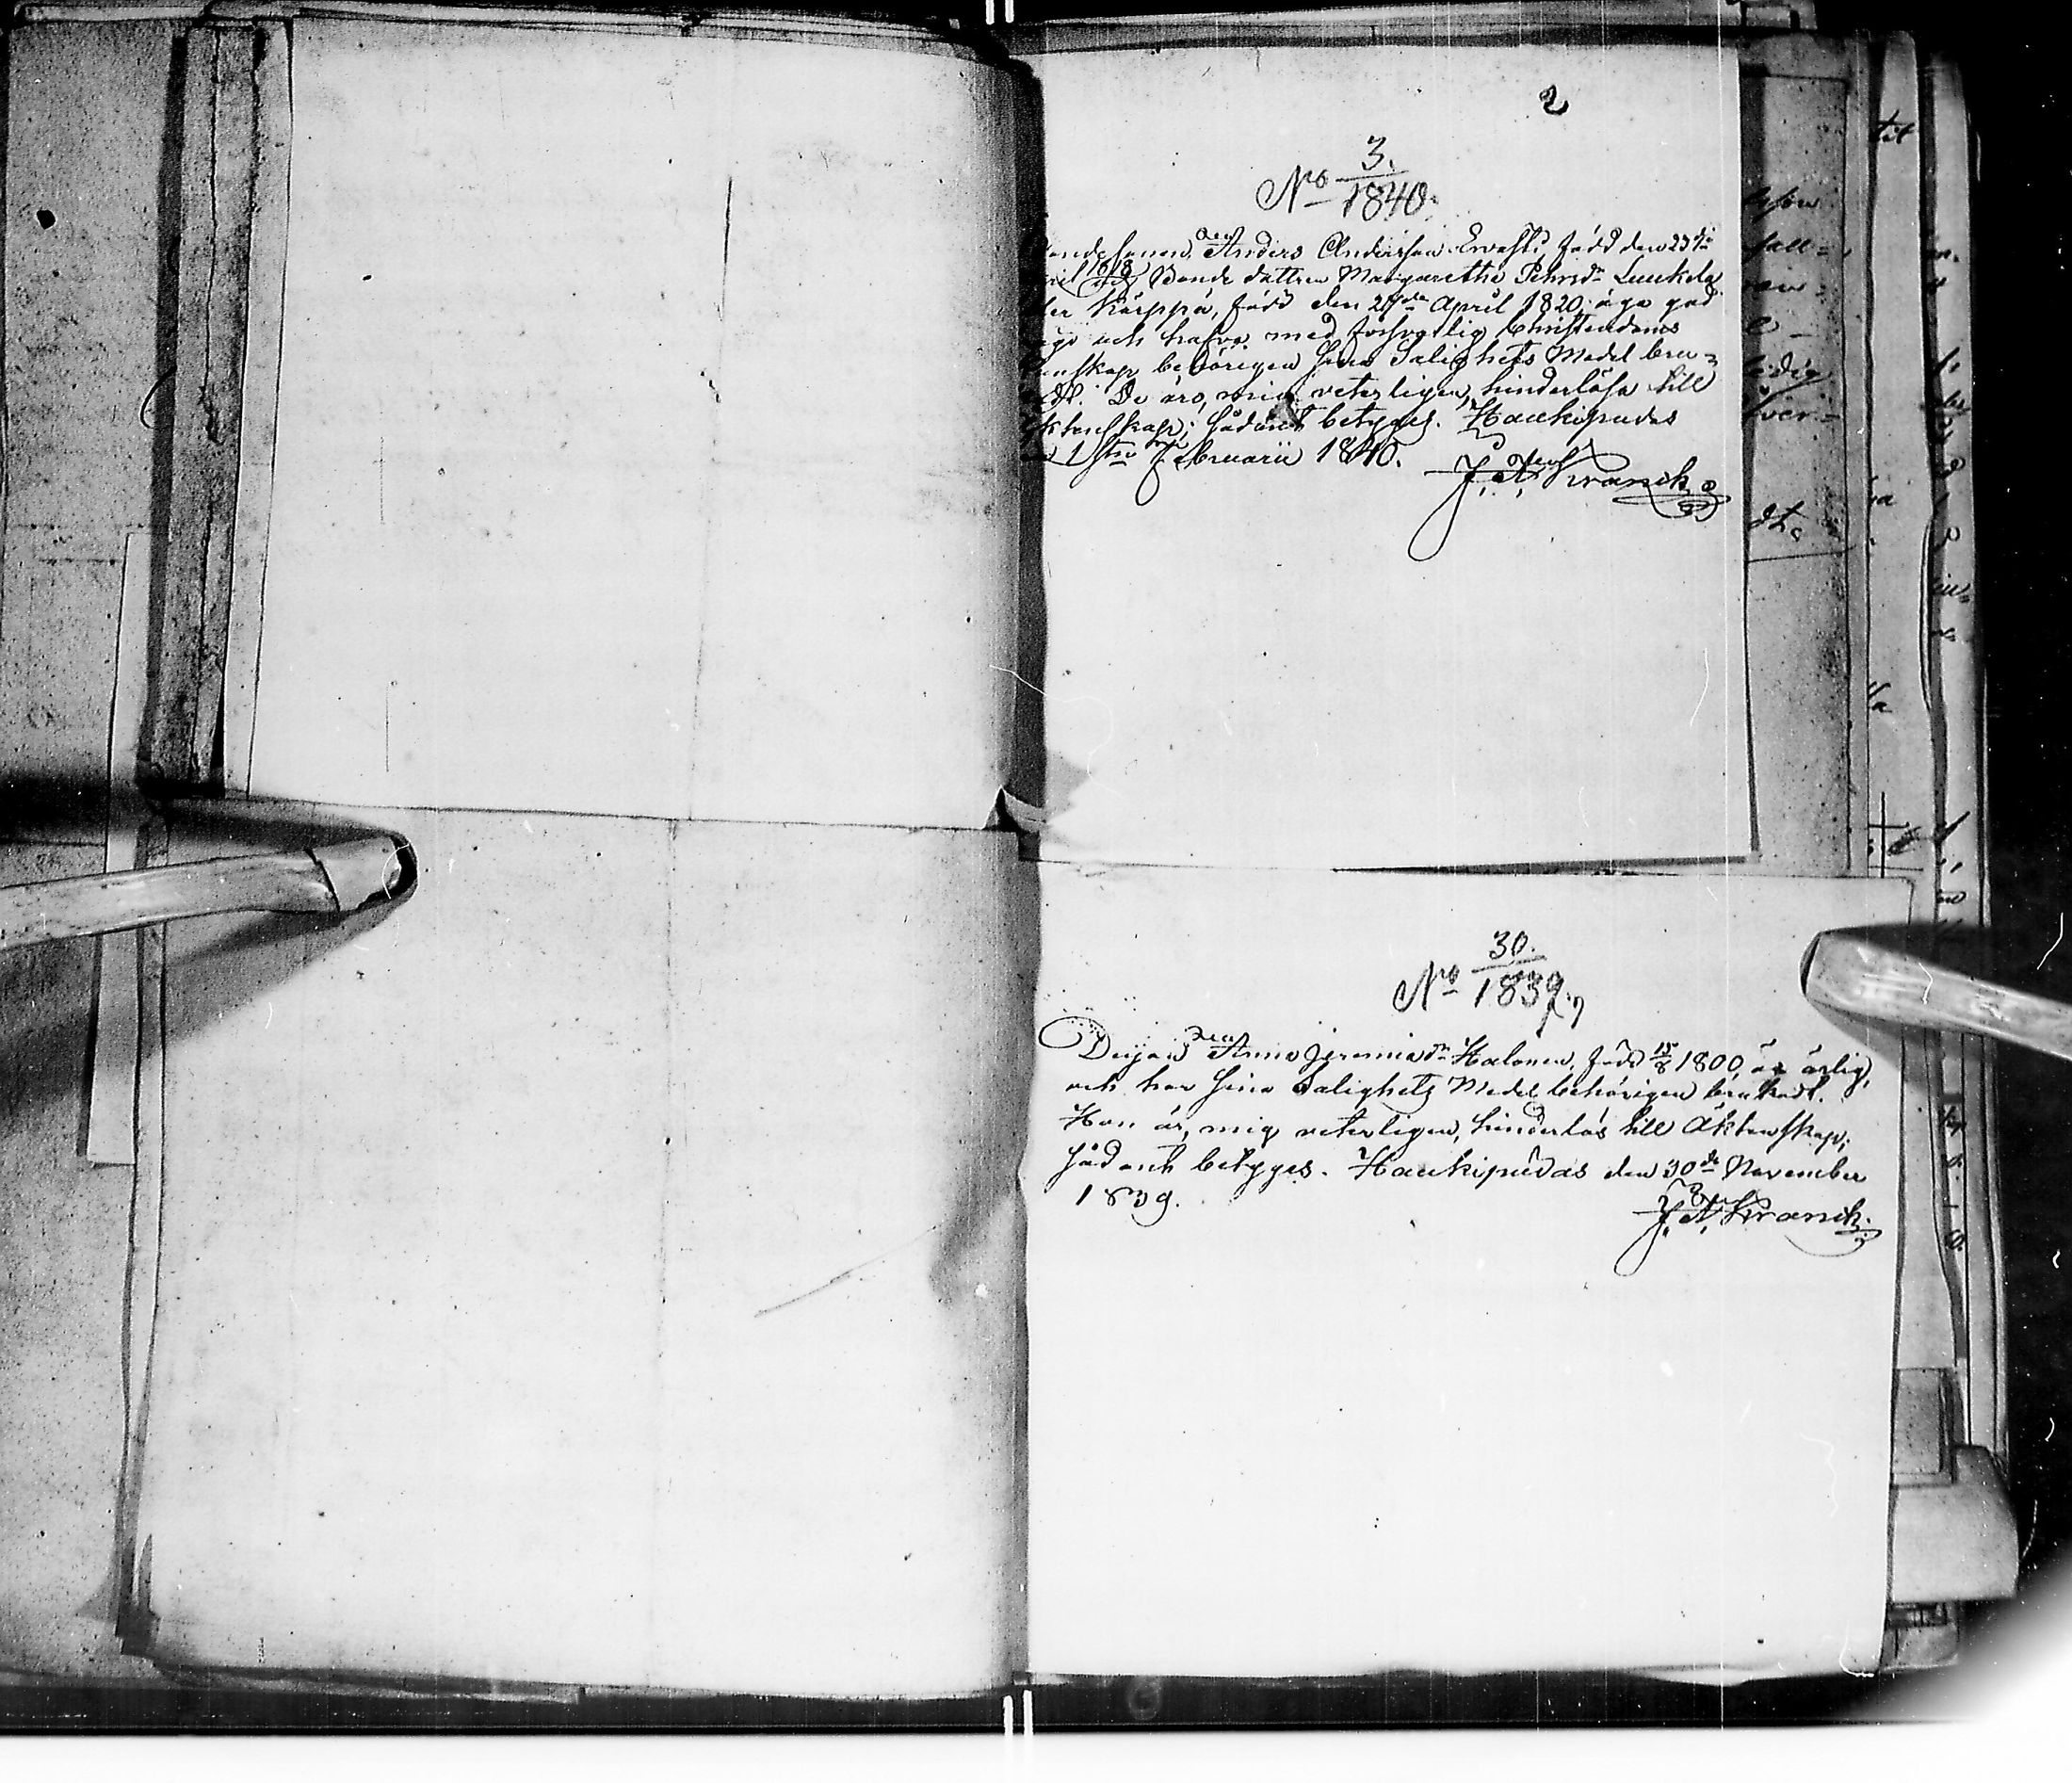 2
No 3.
1840.
Anders Andersson Ervasti, född den 23de
1818 Bonde dottren Margaretha Pehrsdr Luukela
Kärppä, född den 24de April 1820, äga god
och hafva med försvarlig Christendoms
skap behörigen sina Salighets Medel bru-
De äro, mig veterligen, hinderlösa till
ktenskap; sådant betyges. Haukipudas
1sta Februarii 1840.
J. A. Kranck
No 30.
1839.
Deijan Anna Jeremiadr Halonen, född 15/8 1800, är ärlig,
och har sina Salighets Medel behörigen brukadt.
Hon är, mig veterligen, hinderlös till Äktenskap;
sådant betyges. Haukipudas den 30de November
1839.
J. A. Kranck.